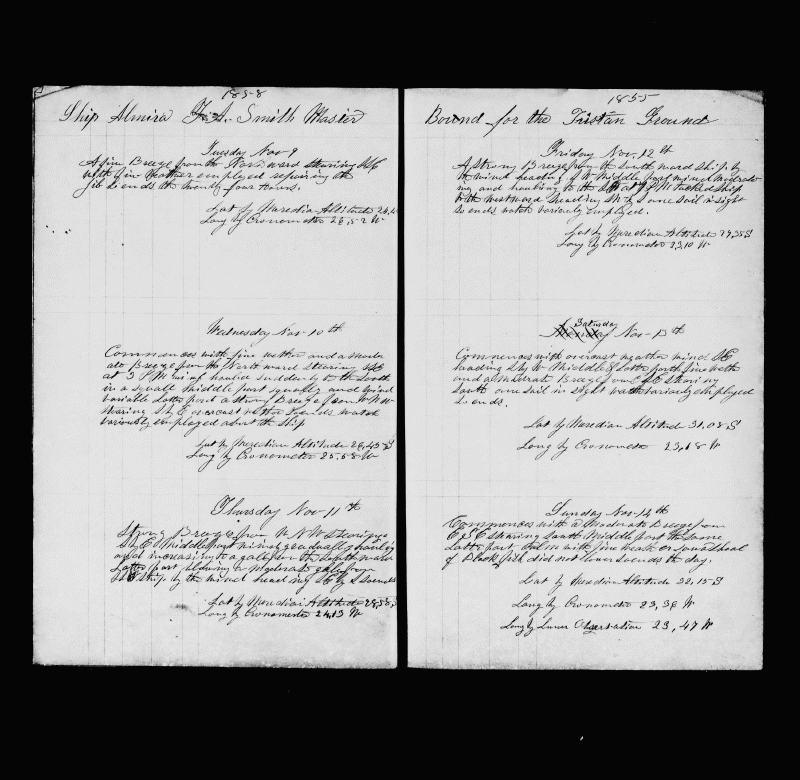 1858
Ship Almira F. A. Smith Master
Tuesday Nov 9
A fine Breeze from the Norwward stearing
with fin weather employed repairing the
Jib So ends the twenty four hours.
Lat by Maredian Altitude
Long by Cronometer 26,52 W
Wednesday Nov 10th
Commences with fine wether and a mode
ate Breeze from the North ward stearing
at 3 PM wind hauled suddenly to the South
in a squall middle part squaly and wind
variable Latter part a strong Breeze from W N W
stearing S by E overcast wether So ends watch
variously employed about the ship
Lat by Meredian Altitude 26,45 S
Long by Cronometer 25,58 W
Thursday Nov 11th
Strong Breeze from W N W Stearing
S by E Middle part wind gradually hauling
and increasing to a gale from the Southward
Latter part blowing a moderate gale from
ship by the wind heading So ends
Lat by Meredian Altitude
Long by Cronometer 24,13 W
1855
Bound for the Tristan Ground
Friday Nov. 12th
A strong Breeze from the South ward ship by
the wind heading Middle part wind modrat
ing and hauling to the at PM tacked ship
to the westward heading SW by S one sail in sight
So ends watch variously employed.
Lat by Meredian Altitude 29,35 S
Long by Cronometer 23,10 W
Saturday
Nov 13th
Commences with overcast weather wind SE
heading S by W Middle & Latter parts fine weth
and a modrate Breeze from stearing
South one sail in sight watch variously employed
So ends.
Lat by Meredian Altitud 31,08 S
Long by Cronometer 23,18 W
Sunday Nov 14th
Commences with a Moderate Breeze from
E S E stearing South Middle part the same
Latter part calm with fine weath er saw a shoal
of Black fish did not lower So ends the day.
Lat by Meredian Altitude 32,15 S
Long by Cronometer 23,38 W
Long by Luner Observation 23,47 W